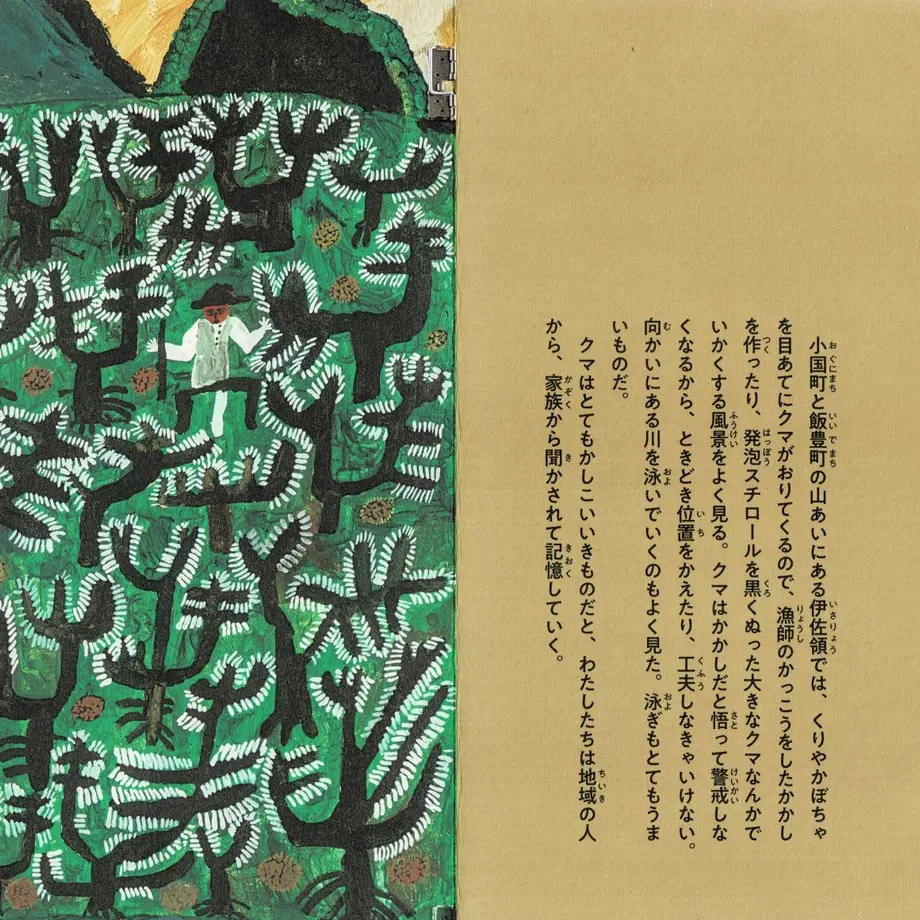 小国町と飯豊町の山あいにある伊佐領では、くりやかぼちゃ
を目あてにクマがおりてくるので、漁師のかっこうをしたかかし
を作ったり、発泡スチロールを黒くぬった大きなクマなんかで
いかくする風景をよく見る。クマはかかしだと悟って警戒しな
くなるから、ときどき位置をかえたり、工夫しなきゃいけない。
向かいにある川を泳いでいくのもよく見た。泳ぎもとてもうま
いものだ。
クマはとてもかしこいいきものだと、わたしたちは地域の人
から、家族から聞かされて記憶していく。